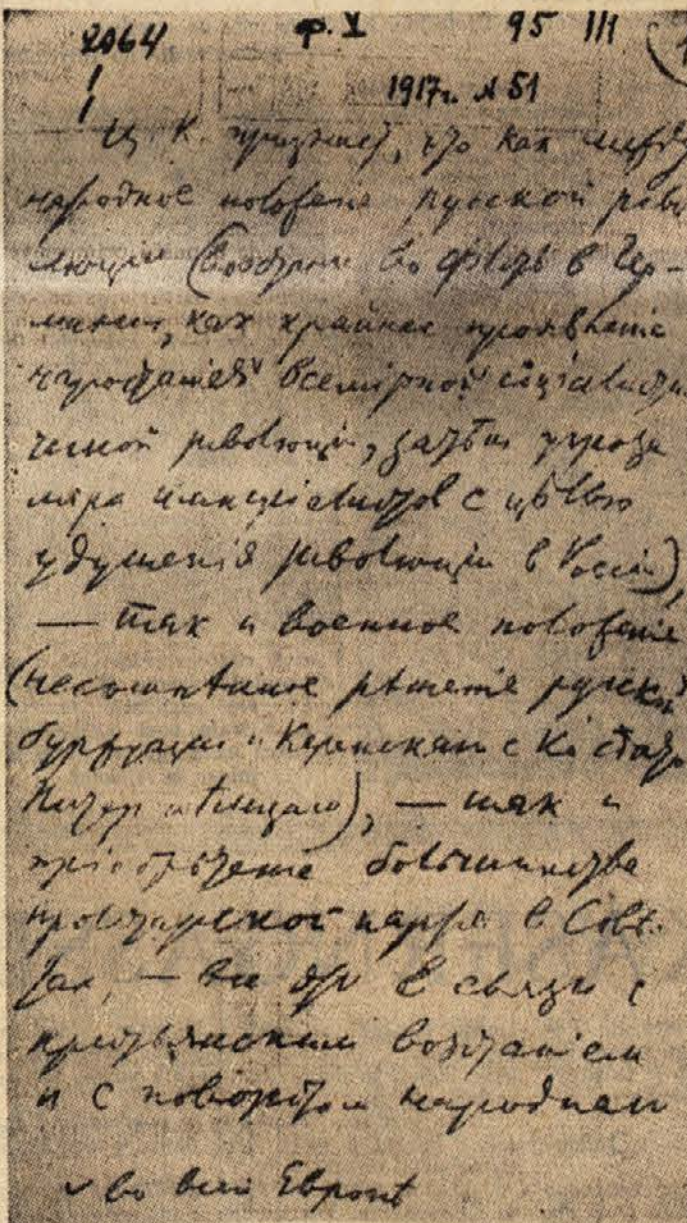 2064 ф. I 95 III (1
1
1 1917г. № 51
Ц К признает, что как между
народное положение русской рево
люции (восстание во флотѣ в Гер-
мании, как крайнее проявление
наростания всемирной социалисти
ческой революции, затѣм угроза
мира империалистов с цѣлью
удушения революции в России),
— так и военное положение
(несомнѣнное рѣшение русской
буржуазии и Керенскаго с Ко сдать
Питер нѣмцам), — так и
приобрѣтение большинства
пролетарской партией в Совѣ-
тах, — все это в связи с
крестьянским возстанием
и с поворотом народнаго
✓ во всей Европѣ